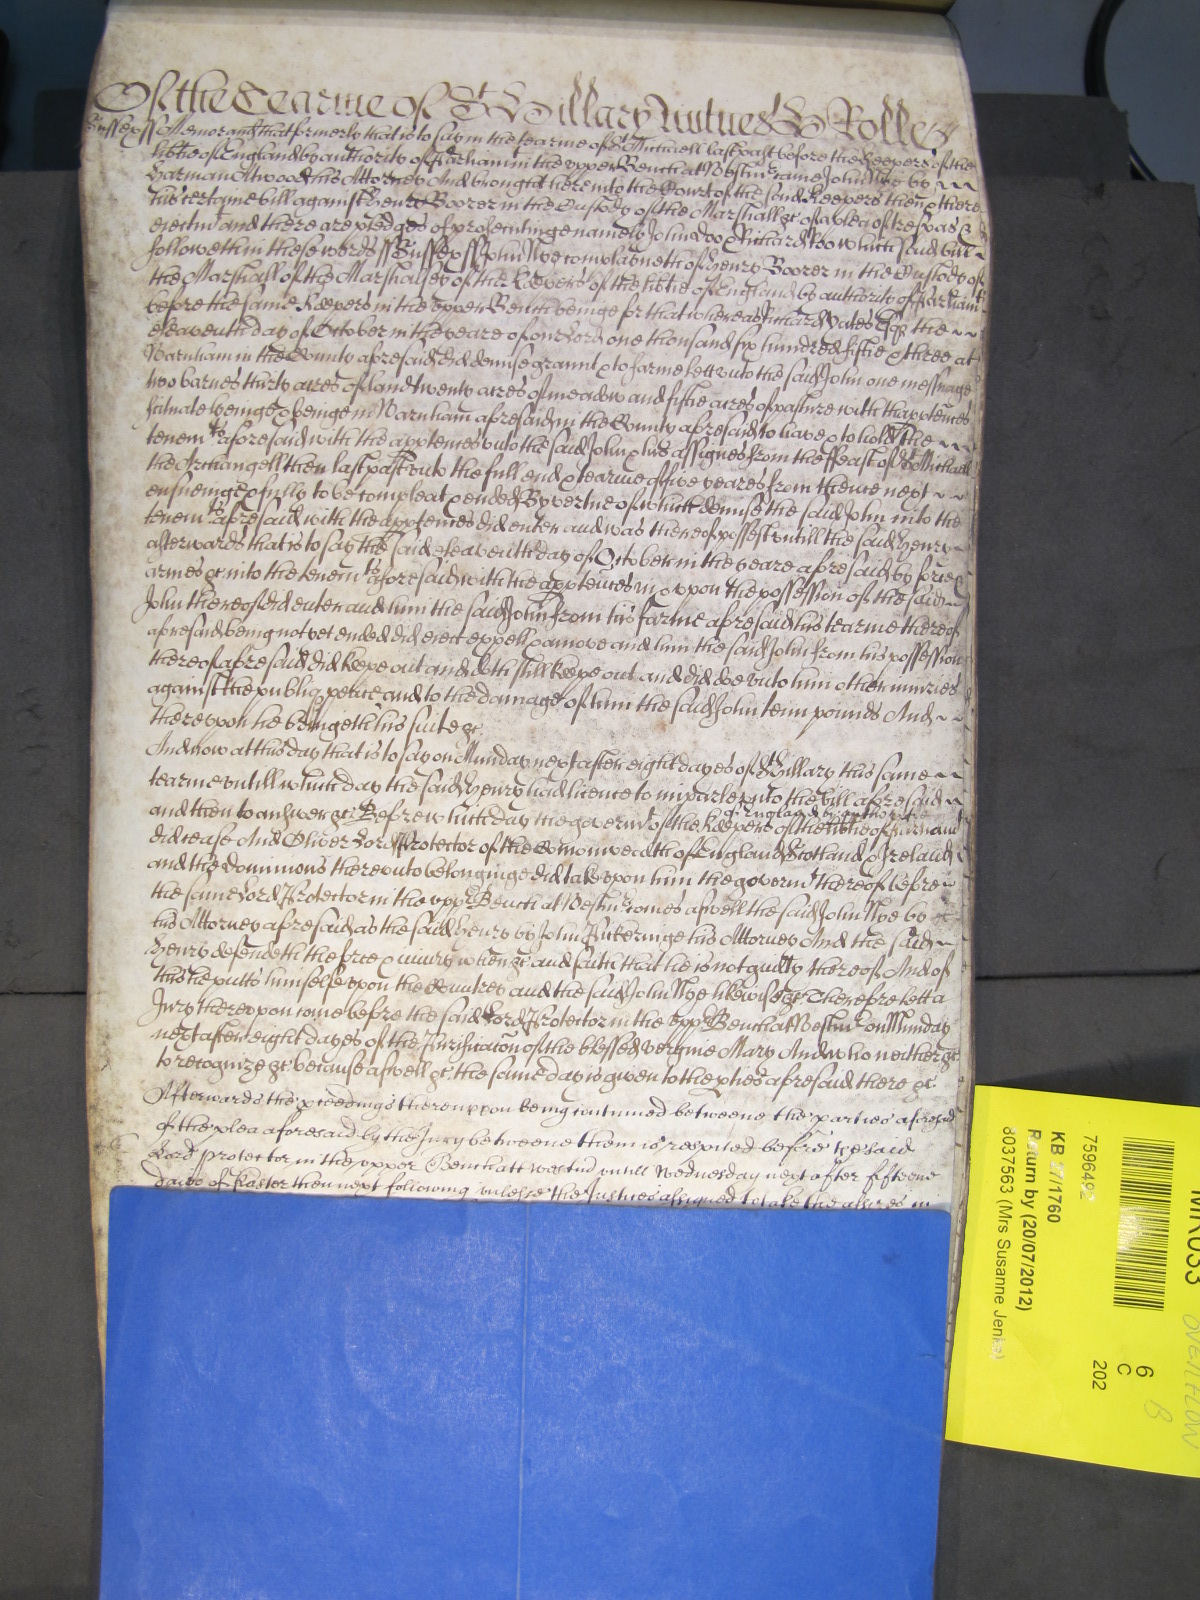 Of the Tearme of St Hillary Witnes Rolle
Sussex ss Memorand that formerly that is to say in the tearme of St Michaell last past before the Keepers of the
libtie of England by authority of Parliam in the upper Bench at Westmr came John Nye by
Harman Atwood his Attorney And brought here into the Court of the said Keepers then & there
his certaine bill against Henry Boorer in the Custody of the Marshall &c of a plea of trespas &
eiectmt and there are pledges of prosecutinge namely John Doo & Richard Roo which said bill
followeth in these words ss Sussex ss John Nye complayneth of Henry Boorer in the Custody of
the Marshall of the Marshalsey of the Keepers of the libtie of England by authority of Parliam
before the same Keepers in the upper Bench beinge for that whereas Richard Yates Esqr the
eleaventh day of October in the yeare of our Lord one thousand six hundred fiftie & three at
Warnham in the County aforesaid did demise graunt & to farme lett unto the said John one messuage
two barnes thirty acres of land twenty acres of meadow and fiftie acres of pasture with thapptences
scituate lyeinge & beinge in Warnham aforesaid in the County aforesaid to have & to hold the
tenemts aforesaid with the apptences unto the said John & his assignes from the ffeast of St Michaell
the Archangell then last past unto the full end & tearme of five yeares from thence next
ensueinge & fully to be compleat & ended By vertue of which demise the said John into the
tenemts aforesaid with the apptences did enter and was thereof possest untill the said Henry
afterwards that is to say the said eleaventh day of October in the yeare aforesaid by force &
armes &c into the tenemts aforesaid with the apptences in & uppon the possession of the said
John thereof did enter and him the said John from his farme aforesaid his tearme thereof
aforesaid being not yet ended did eiect expell & amove and him the said John from his possession
thereof aforesaid did keepe out and doth still keepe out and did doe unto him other iniuries
against the publiq peace and to the damage of him the said John tenn pounds And
thereupon he bringeth his suite &c
And now at this day that is to say on Munday next after eight dayes of St Hillary this same
tearme untill which day the said Henry had licence to imparle unto the bill aforesaid
and then to answer &c Before which day the governmt of the Keepers of the libtie of England by authoritie of Parliamt
did cease And Oliver Lord Protector of the Comonwealth of England Scotland & Ireland
and the dominions thereunto belonginge did take upon him the governmt thereof before
the same Lord Protector in the uppr Bench at Westmr comes aswell the said John Nye by
his Attorney aforesaid as the said Henry by John Pickeringe his Attorney And the said
Henry defendeth the force & iniury when &c and saith that he is not guilty thereof And of
this he putts himself upon the Countrey and the said John Nye likewise &c Therefore lett a
Jury thereupon come before the said Lord Protector in the uppr Bench at Westmr on Munday
next after eight dayes of the Purificacon of the blessed virgine Mary And who neither &c
to recognize &c because aswell &c the same day is given to the pties aforesaid there &c
Afterwards the pceedings thereuppon being continued betweene the parties aforesd
of the plea aforesaid by the Jury betweene them is respited before the said
Lord protector in the upper Bench att Westmr untill Wednesday next after fifteene
daies of Easter then next following unlesse the Justices assigned to take the assizes in
7596492
KB 27/1760
Return by (20/07/2012)
8037563 (Mrs Susanne Jenks)
6
C
202
MR033
OVERFLOW
B